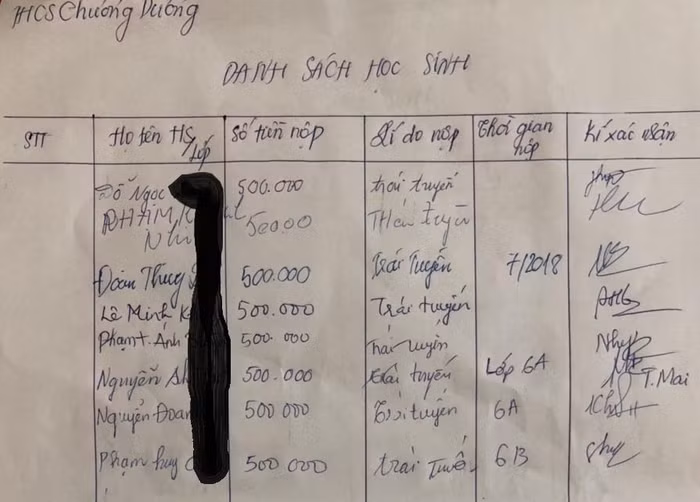 THCS Chương Dương
DANH SÁCH HỌC SINH
STT Họ tên HS/Lớp Số tiền nộp Lí do nộp Thời gian nộp Kí xác nhận
Đỗ Ngọc 500.000 trái tuyến
PHẠM 50000
Nhi
Đoàn Thuỳ 500.000 Trái Tuyến 7/2018
Lê Minh K 500.000 Trái tuyến
Phạm T. Ánh 500.000
Nguyễn 500.000 trái tuyến Lớp 6A T. Mai
Nguyễn Đoan 500 000 6A
Phạm huy 500 000 trái 6B